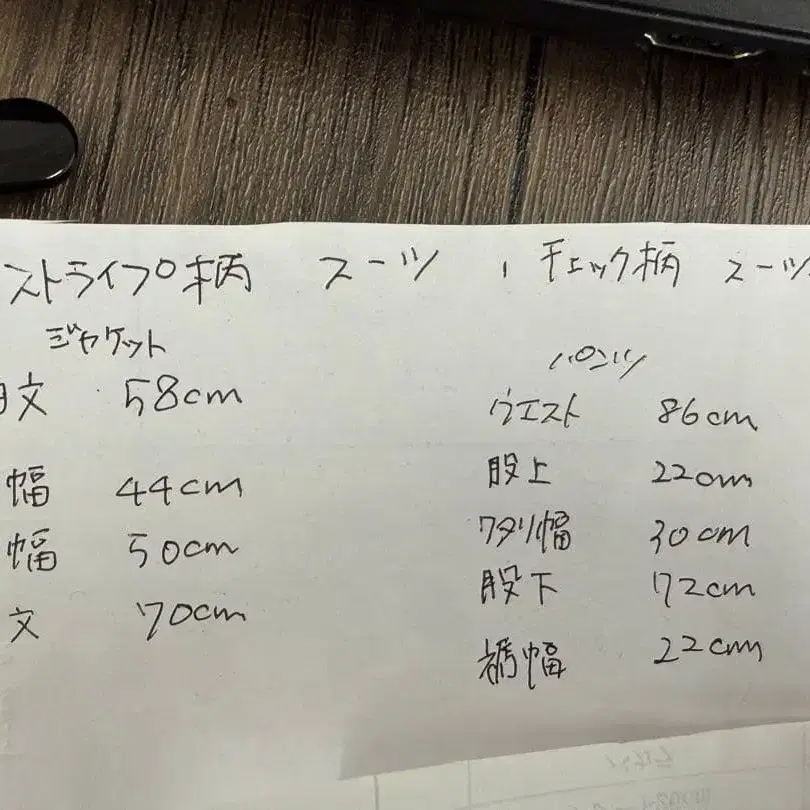 ストライプ柄 スーツ , チェック柄 スーツ
ジャケット
文 58cm
幅 44cm
幅 50cm
文 70cm
パンツ
ウエスト 86cm
股上 22cm
ワタリ幅 30cm
股下 72cm
裾幅 22cm